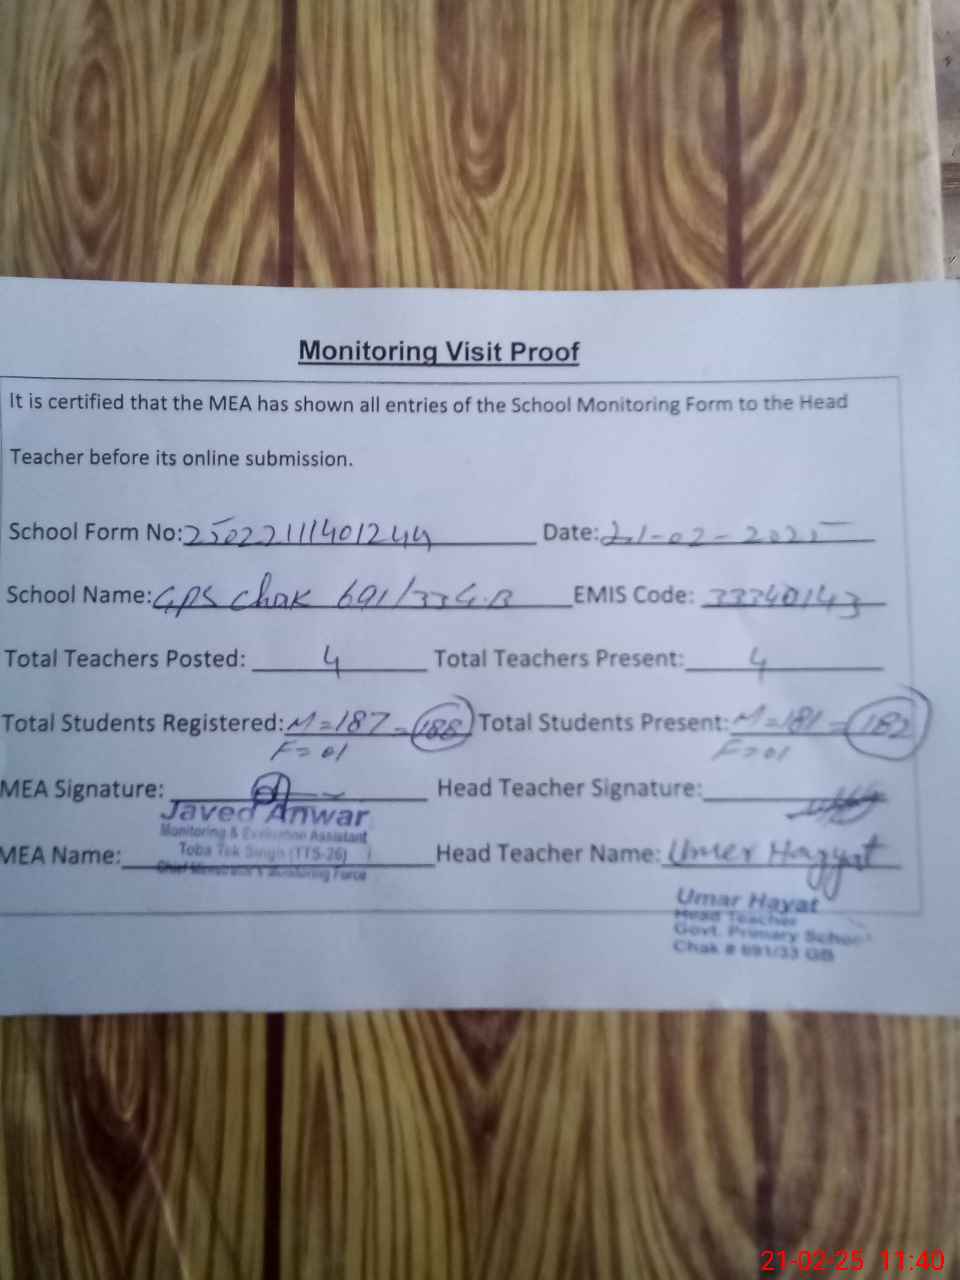 Monitoring Visit Proof
It is certified that the MEA has shown all entries of the School Monitoring Form to the Head
Teacher before its online submission.
School Form No: 25022111401244 Date: 21-02-2025
School Name: GPS Chak 691/33G.B EMIS Code: 33340143
Total Teachers Posted: 4 Total Teachers Present: 4
Total Students Registered: M=187 - 188 Total Students Present: M=181 - 182
F=01 F=01
MEA Signature: Head Teacher Signature:
Javed Anwar
Monitoring & Evaluation Assistant
Toba Tek Singh (TTS-26)
MEA Name: Head Teacher Name: Umer Hayyat
Chief Minister's Monitoring Force
Umar Hayat
Head Teacher
Govt. Primary School
Chak # 691/33 GB
21-02-25 11:40